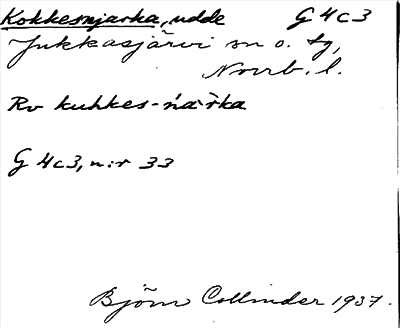 Kokkesnjarka, udde G4c3
Jukkasjärvi sn o. tg,
Norrb. l.
Rv kuhkes-ńar̀ka
G4c3, n:r 33
Björn Collinder 1937.